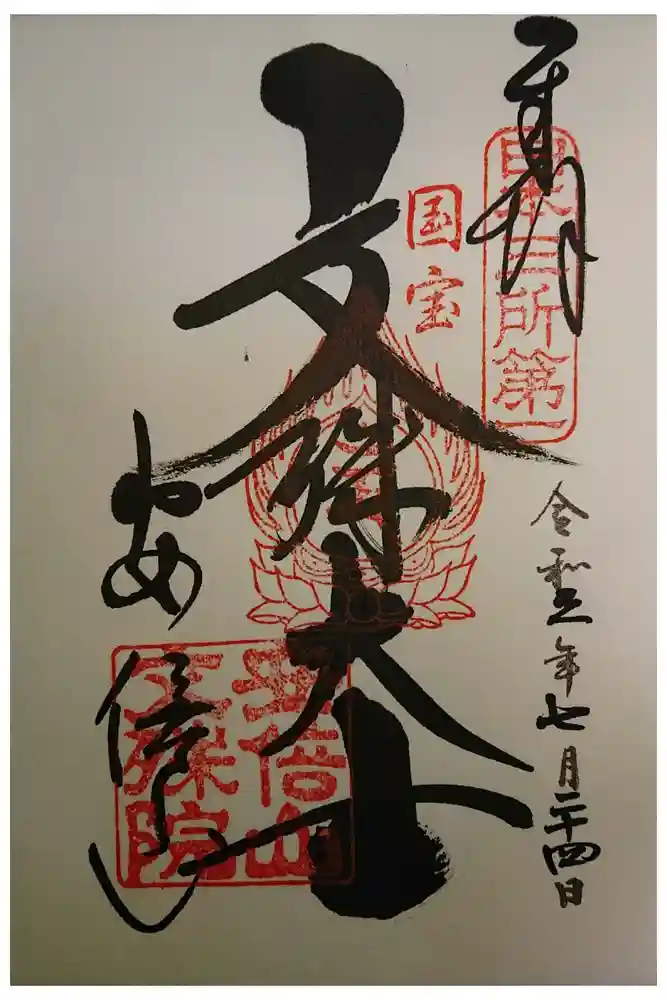 奉拝
日本三所第一
令和三年七月二十四日
国宝
文殊大士
安倍山
安倍山
文殊院